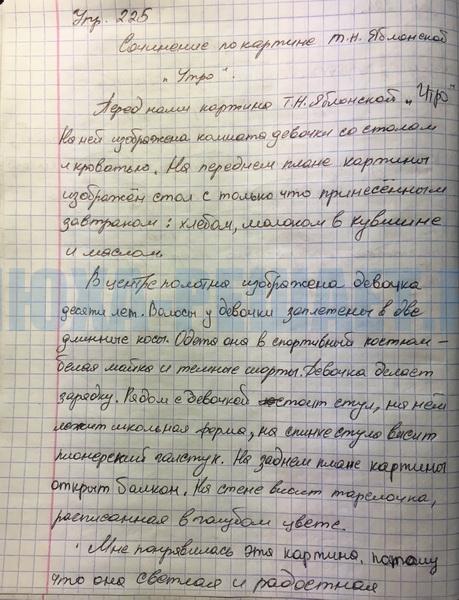 Упр. 225
Сочинение по картине Т.Н. Яблонской
„Утро".
Перед нами картина Т.Н. Яблонской „Утро"
На ней изображена комната девочки со столом
и кроватью. На переднем плане картины
изображён стол с только что принесённым
завтраком: хлебом, молоком в кувшине
и маслом.
В центре полотна изображена девочка
десяти лет. Волосы у девочки заплетены в две
длинные косы. Одета она в спортивный костюм –
белая майка и темные шорты. Девочка делает
зарядку. Рядом с девочкой стоит стул, на нём
лежит школьная форма, на спинке стула висит
пионерский галстук. На заднем плане картины
открыт балкон. На стене висит тарелочка,
расписанная в голубом цвете.
Мне понравилась эта картина, потому
что она светлая и радостная